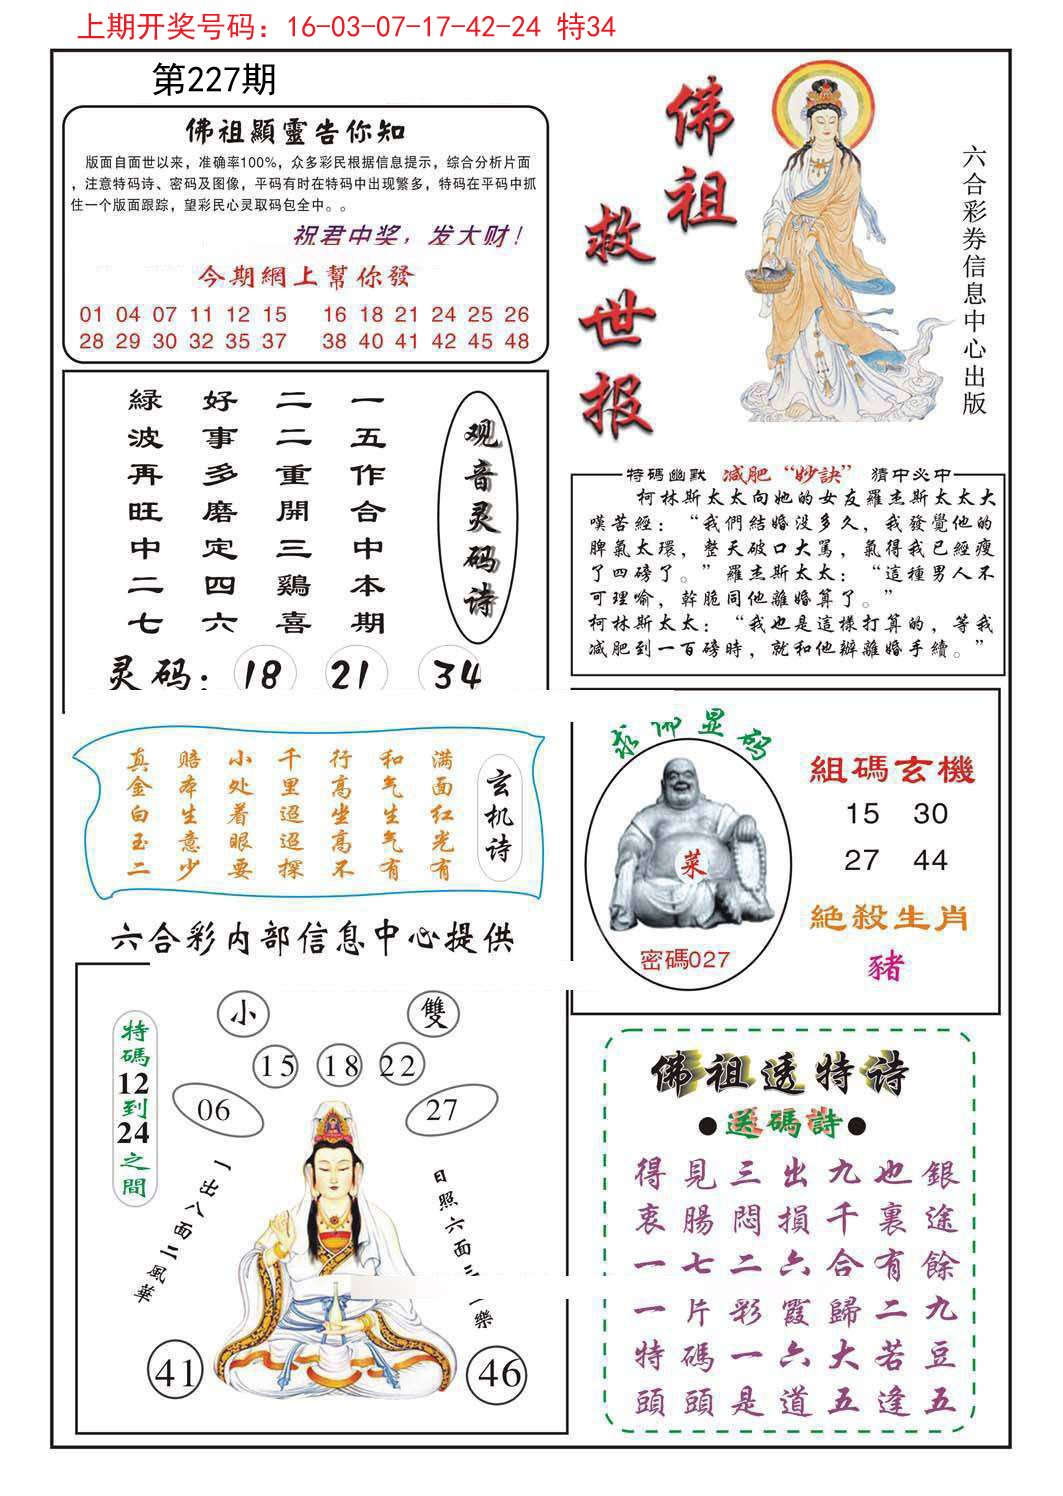 上期开奖号码：16-03-07-17-42-24 特34
第227期
佛祖顯靈告你知
版面自面世以来，准确率100%，众多彩民根据信息提示，综合分析片面
，注意特码诗、密码及图像，平码有时在特码中出现繁多，特码在平码中抓
住一个版面跟踪，望彩民心灵取码包全中。。
祝君中奖，发大财！
今期網上幫你發
01 04 07 11 12 15 16 18 21 24 25 26
28 29 30 32 35 37 38 40 41 42 45 48
佛祖
救世报
六合彩券信息中心出版
观音灵码诗
一五作合中本期
二二重開三鷄喜
好事多磨定四六
緑波再旺中二七
灵码：18 21 34
特碼幽默 减肥“妙訣” 猜中必中
柯林斯太太向她的女友羅杰斯太太大
嘆苦經：“我們結婚没多久，我發覺他的
脾氣太環，整天破口大駡，氣得我已經瘦
了四磅了。”羅杰斯太太：“這種男人不
可理喻，幹脆同他離婚算了。”
柯林斯太太：“我也是這樣打算的，等我
减肥到一百磅時，就和他辦離婚手續。”
玄机诗
满面红光有
和气生气有
行高坐高不
千里迢迢探
小处着眼要
赔本生意少
真金白玉二
六合彩内部信息中心提供
显码
菜
密碼027
組碼玄機
15 30
27 44
絕殺生肖
豬
特碼12到24之間
小 雙
15 18 22
06 27
一出八面二風華
日照六面三
樂
41 46
佛祖透特诗
●送碼詩●
得見三出九也銀
衷腸悶損千裏途
一七二六合有餘
一片彩霞歸二九
特碼一六大若豆
頭頭是道五逢五